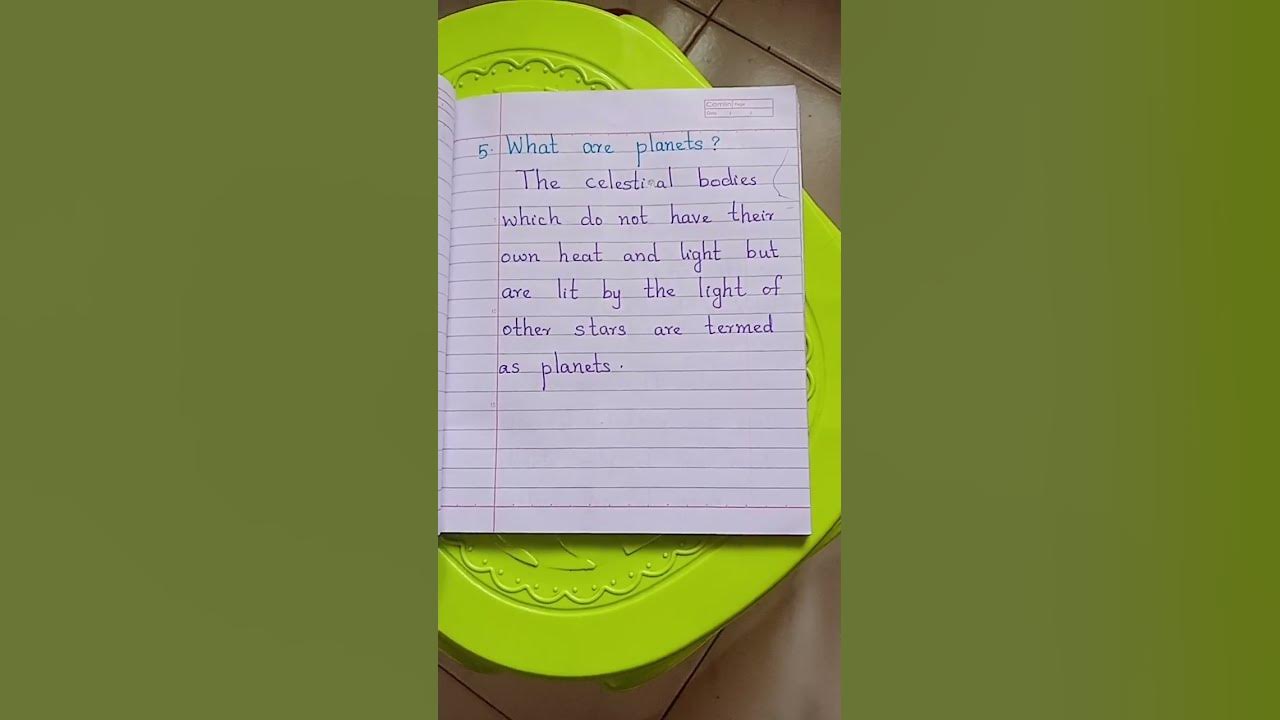 Camlin Page
Date / /
5. What are planets?
The celestial bodies
which do not have their
own heat and light but
are lit by the light of
other stars are termed
as planets.